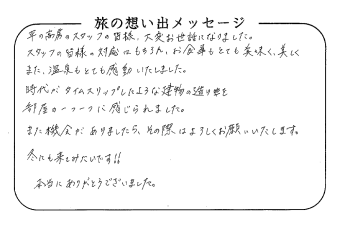 旅の想い出メッセージ
スタッフの皆様、大変お世話になりました。
スタッフの皆様の対応はもちろん、お食事もとても美味く、美しく
また、温泉もとても感動いたしました。
時代がタイムスリップしたような建物の造りを
部屋一つ一つに感じられました。
また機会がありましたら、その際はよろしくお願いいたします。
冬にも来しみたいです!!
本当にありがとうございました。